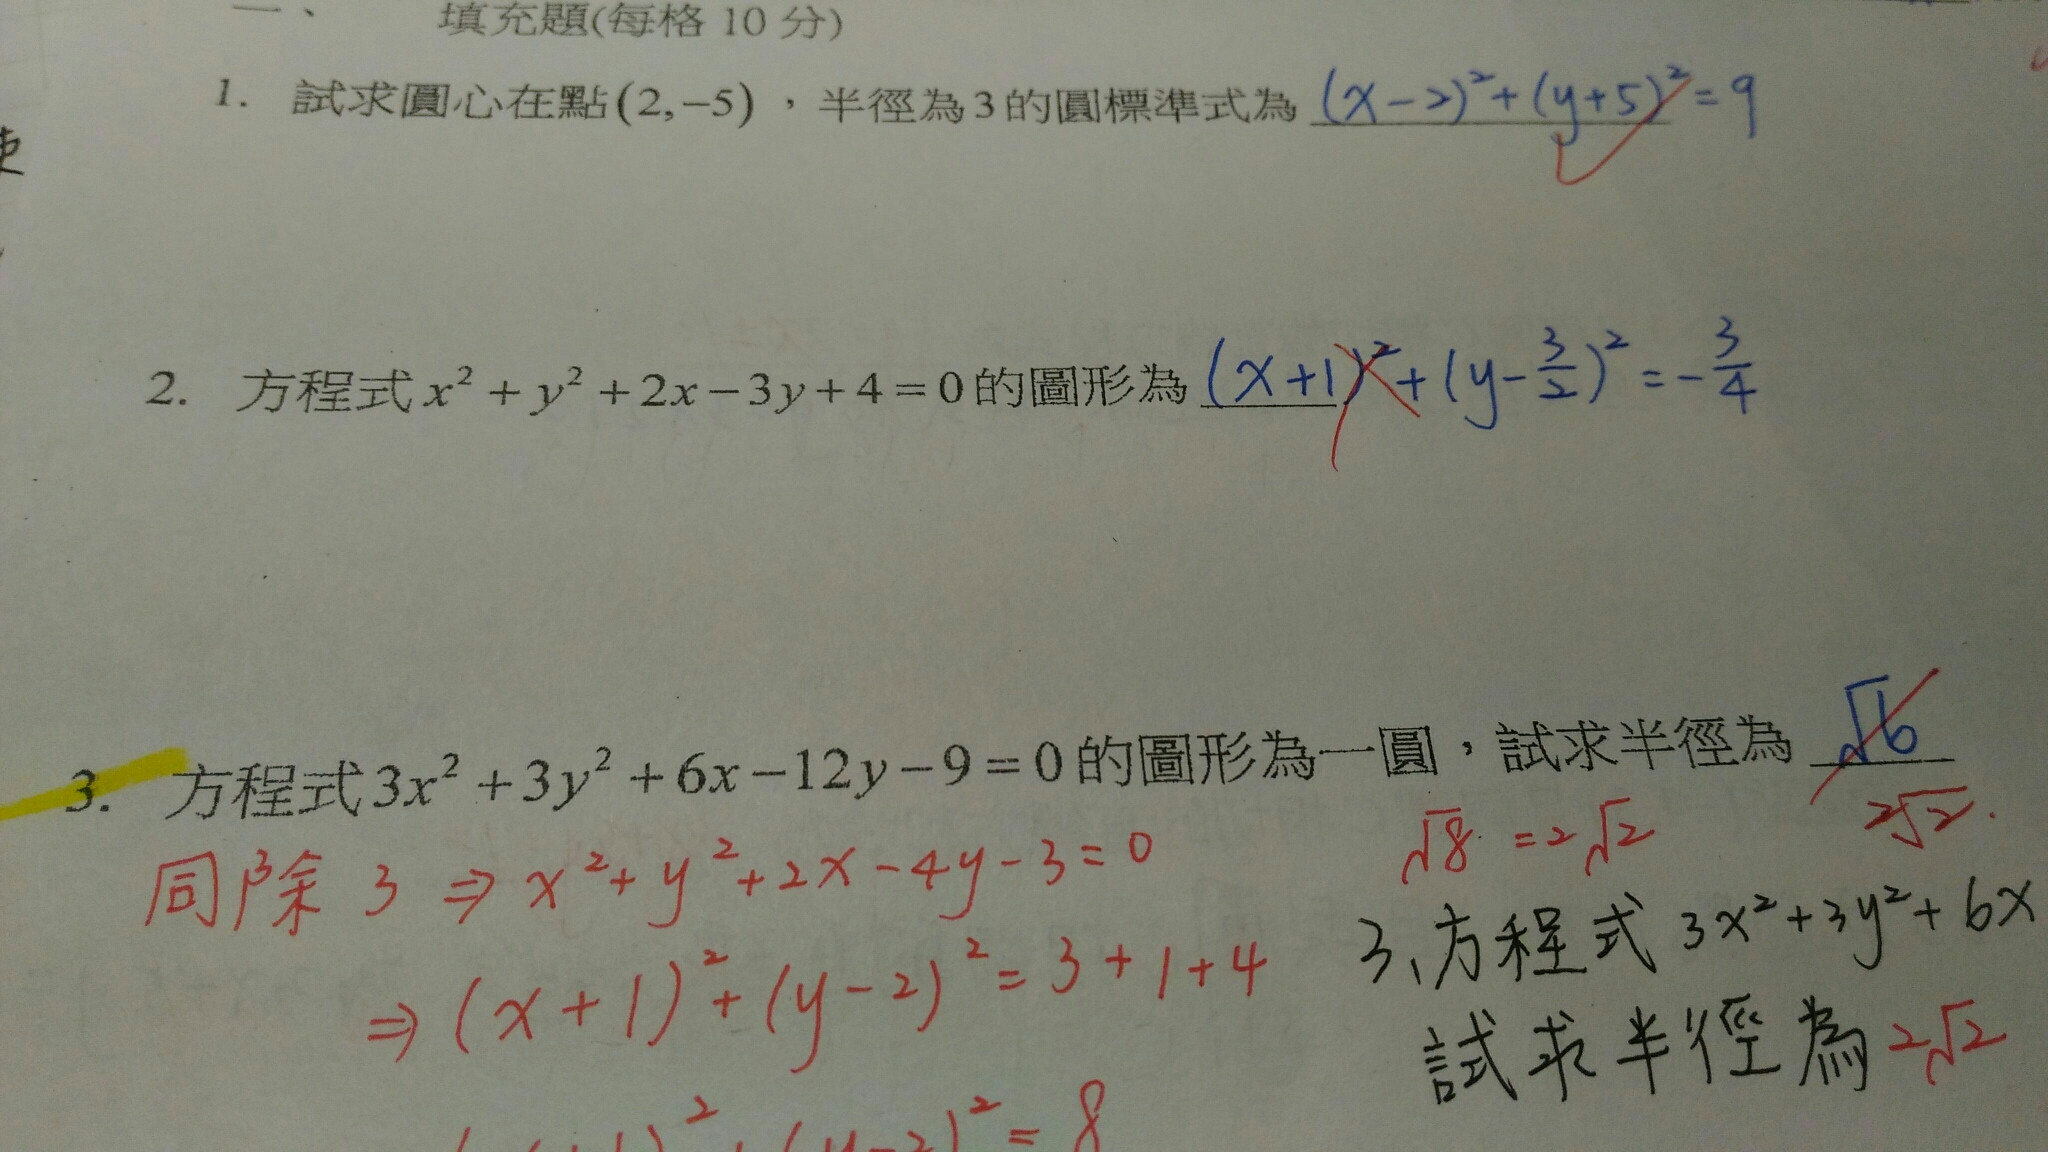 一、 填充題(每格 10 分)
1. 試求圓心在點(2,−5),半徑為3的圓標準式為 (x−2)²+(y+5)²=9
2. 方程式 x²+y²+2x−3y+4=0的圖形為 (x+1)²+(y−3/2)²=−3/4
3. 方程式3x²+3y²+6x−12y−9=0的圖形為一圓,試求半徑為 √6
√8 = 2√2 2√2.
同除 3 ⇒ x²+y²+2x−4y−3=0
⇒ (x+1)²+(y−2)²=3+1+4
(x+1)²+(y−2)²=8
3、方程式 3x²+3y²+6x
試求半徑為 2√2